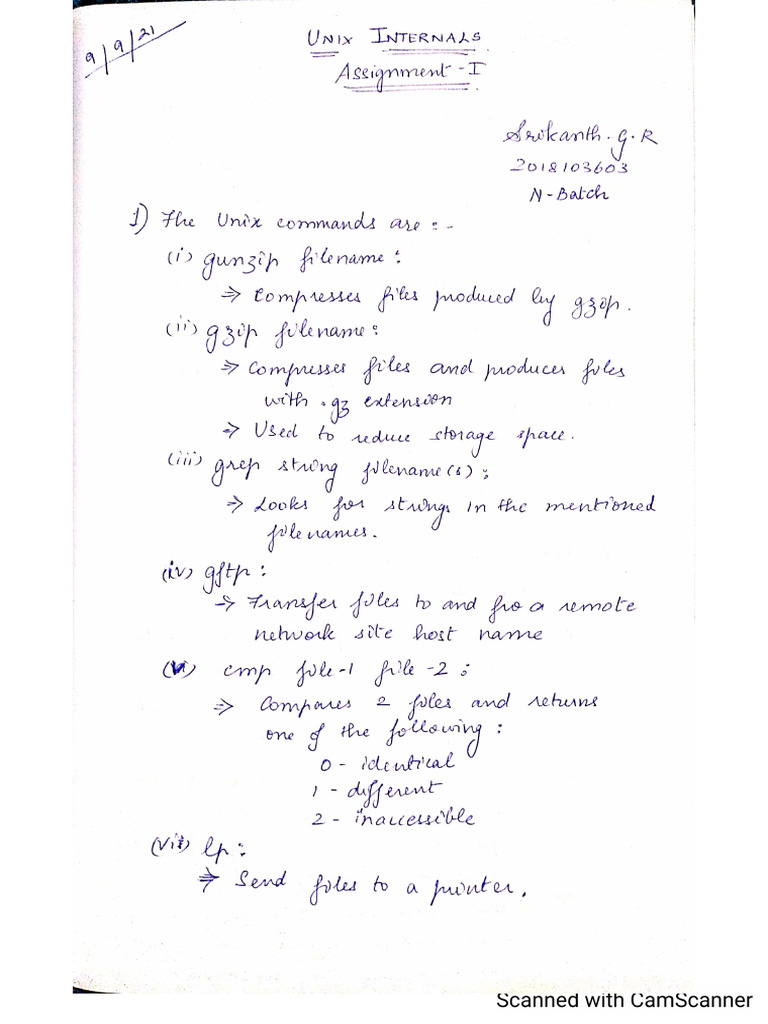 9/9/21
UNIX INTERNALS
Assignment - I
Srikanth. G. R
2018103603
N-Batch
1) The Unix commands are : -
(i) gunzip filename :
⇒ Compresses files produced by gzip.
(ii) gzip filename :
⇒ Compresses files and produces files
with .gz extension
⇒ Used to reduce storage space.
(iii) grep string filename(s) :
⇒ Looks for strings in the mentioned
filenames.
(iv) gftp :
⇒ Transfer files to and fro a remote
network site host name
(v) cmp file-1 file-2 :
⇒ Compares 2 files and returns
one of the following :
0 - identical
1 - different
2 - inaccessible
lp :
⇒ Send files to a printer.
Scanned with CamScanner